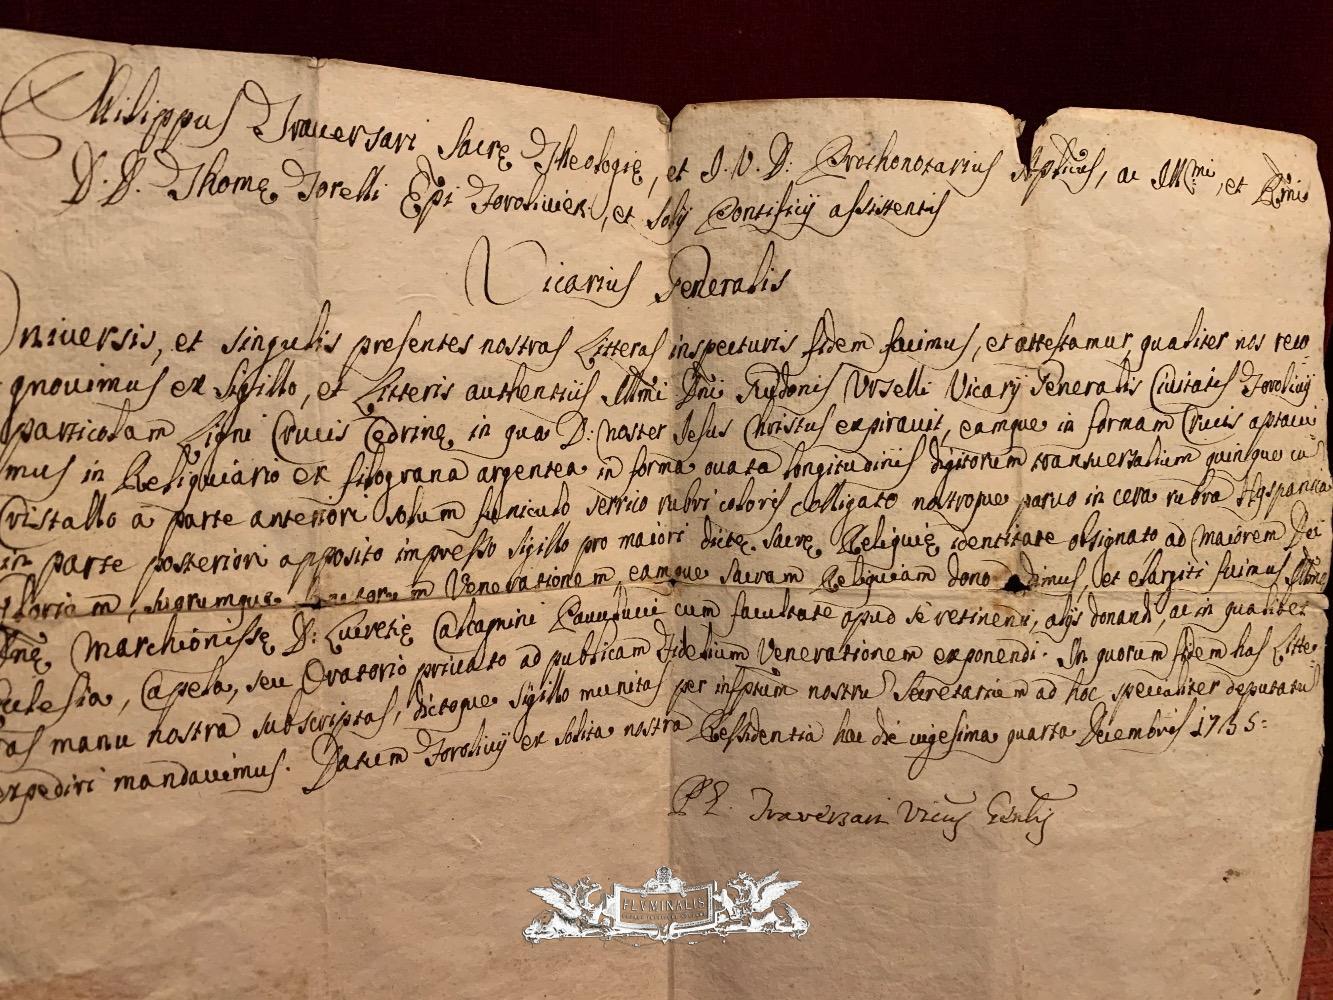 Philippus Traversari Sacrę Theologię, et I. V. D: Prothonotarius Aplicus, ac Illmi, et Rmi
D. D. Thomę Torelli Epi Forolivien, et Solij Pontificij assistentis
Vicarius Generalis
Universis, et singulis presentes nostras Litteras inspecturis fidem facimus, et attestamur, qualiter nos reco
gnovimus ex Sigillo, et Litteris authenticis Illmi Dni Urselli Vicarij Generalis Civitatis Forolivij
particolam Ligni Crucis Cedrinę in qua D: noster Jesus Christus expiravit, eamque in formam Crucis aptavi
mus in Reliquiario ex filograna argentea in forma ovata longitudinis digitorum transversalium quinque cu
Cristallo a parte anteriori solum funiculo serrico rubri coloris colligato nostroque parvo in cera rubra Hyspanica
in parte posteriori apposito impresso sigillo pro maiori dictę Sacrę Reliquię identitate obsignato ad maiorem Dei
gloriam, suorumque Venerationem, eamque sacram Reliquiam dono dedimus, et elargiti fuimus Illmę
Dnę Marchionissę D: Lucretię Calcagnini Paulucci cum facultate apud se retinendi, alijs donandi, ac in qualibet
Ecclesia, Capela, seu Oratorio privato ad publicam Fidelium Venerationem exponendi. In quorum fidem has Litte
ras manu nostra subscriptas, dictoque sigillo munitas per infptum nostru Secretarium ad hoc specialiter deputatu
expediri mandavimus. Datum Forolivij ex solita nostra Ressidentia hac die vigesima quarta Decembris 1755:
Ph. Traversari Vicus Gnlis
FLVMINALIS